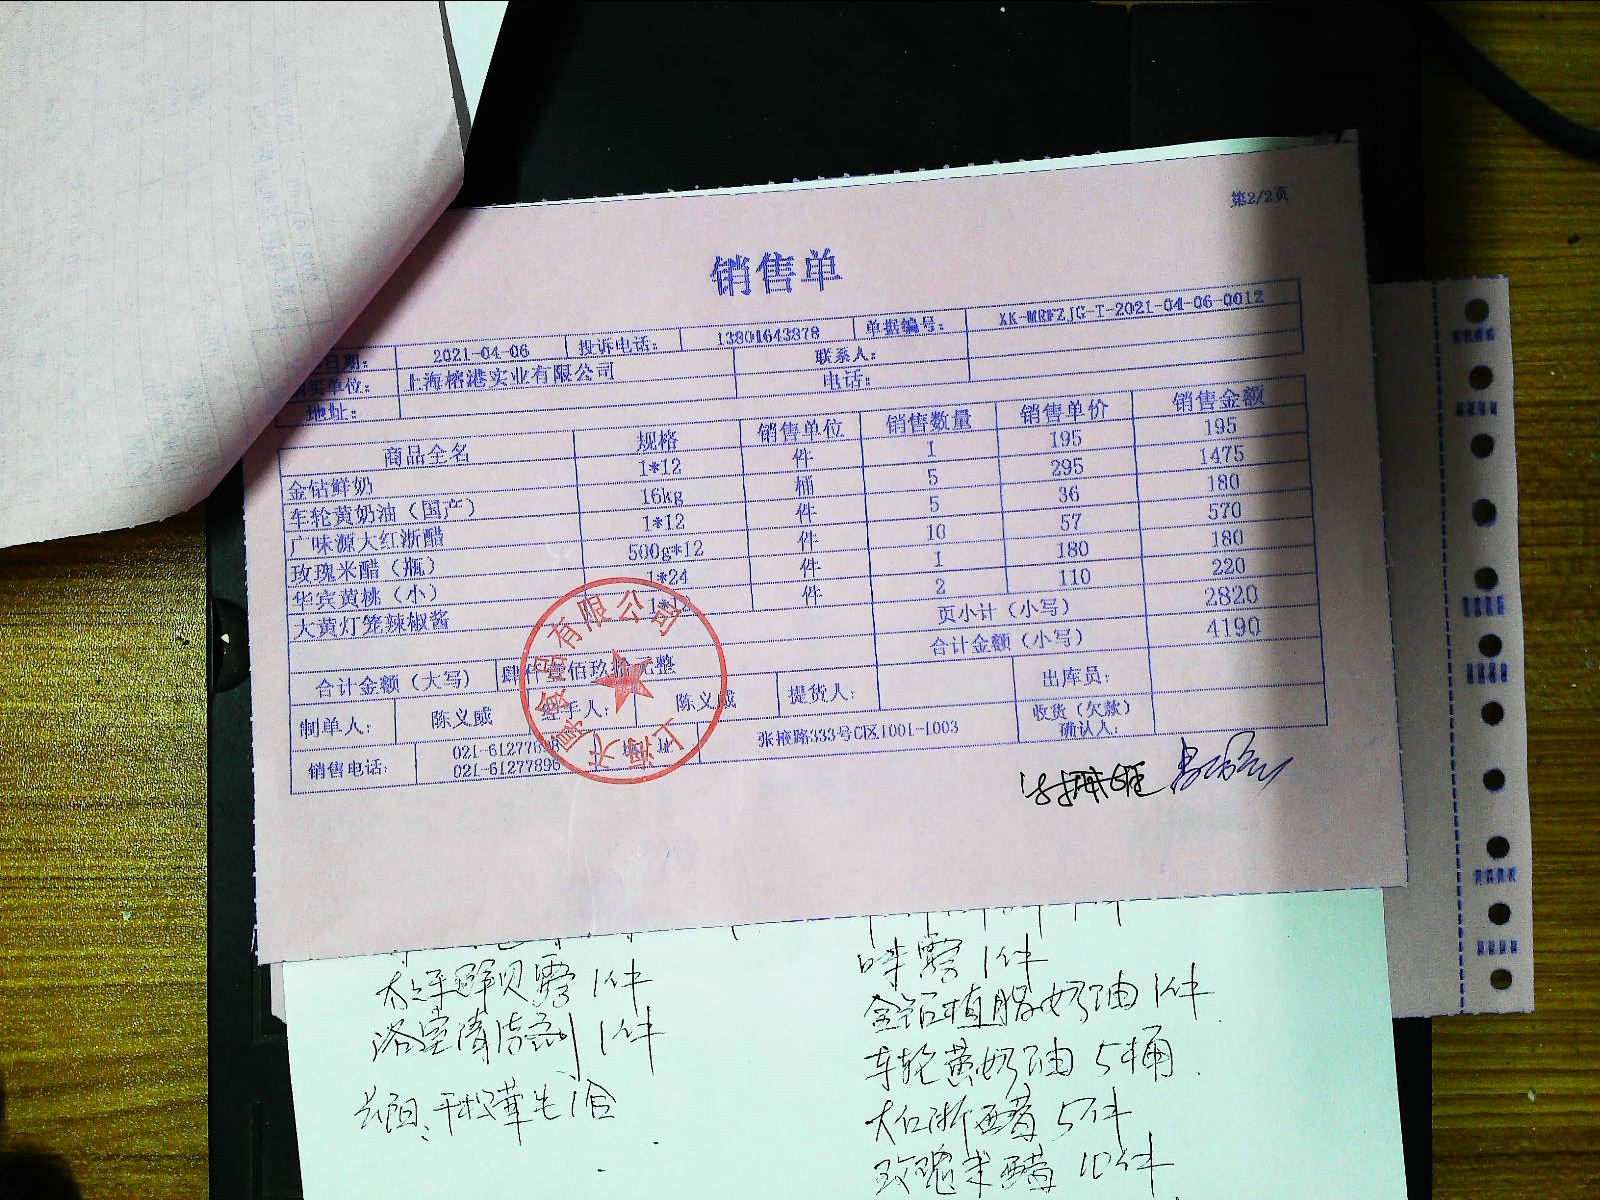 第2/2页
销售单
日期： 2021-04-06 投诉电话： 13801643878 单据编号： XK-MRFZJG-T-2021-04-06-0012
购买单位： 上海榕港实业有限公司 联系人：
地址： 电话：
商品全名 规格 销售单位 销售数量 销售单价 销售金额
金钻鲜奶 1*12 件 1 195 195
车轮黄奶油（国产） 16kg 桶 5 295 1475
广味源大红浙醋 1*12 件 5 36 180
玫瑰米醋（瓶） 500g*12 件 10 57 570
华宾黄桃（小） 1*24 件 1 180 180
大黄灯笼辣椒酱 件 2 110 220
页小计（小写） 2820
合计金额（大写） 肆仟壹佰玖拾元整 合计金额（小写） 4190
制单人： 陈义威 经手人： 陈义威 提货人： 出库员：
销售电话： 021-61277898 张掖路333号C区1001-1003 收货（欠款）
021-61277896 确认人：
有限公司
上海
味露 1件
1件
金钻植脂奶油 1件
浴室清洁剂 1件
车轮黄奶油 5桶
大红浙醋 5件
玫瑰米醋 10件